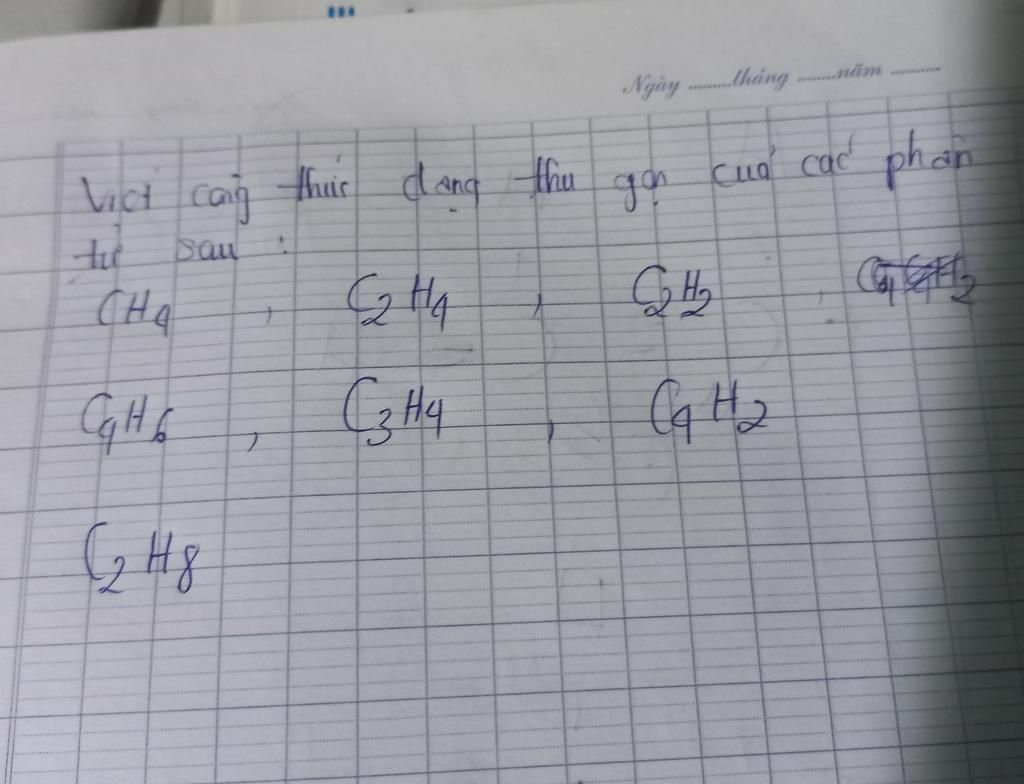 Ngày ........tháng ........năm ..........
Viết công thức dạng thu gọn của các phân
tử sau :
CH4 , C2H4 , C2H2 ,
C4H6 , C3H4 , C4H2
C2H8